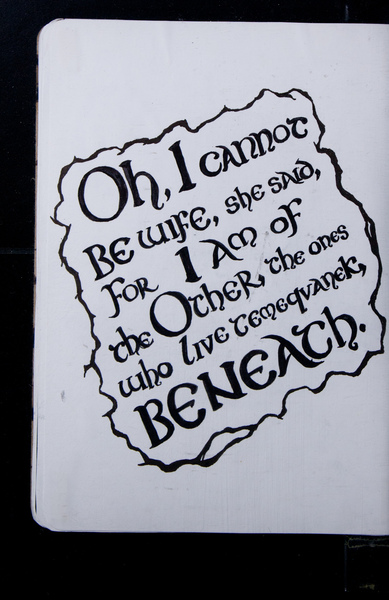 Oh, I cannot
Be wife, she said,
for I Am of
the Other, the ones
who live temeqvanek,
BENEATh.